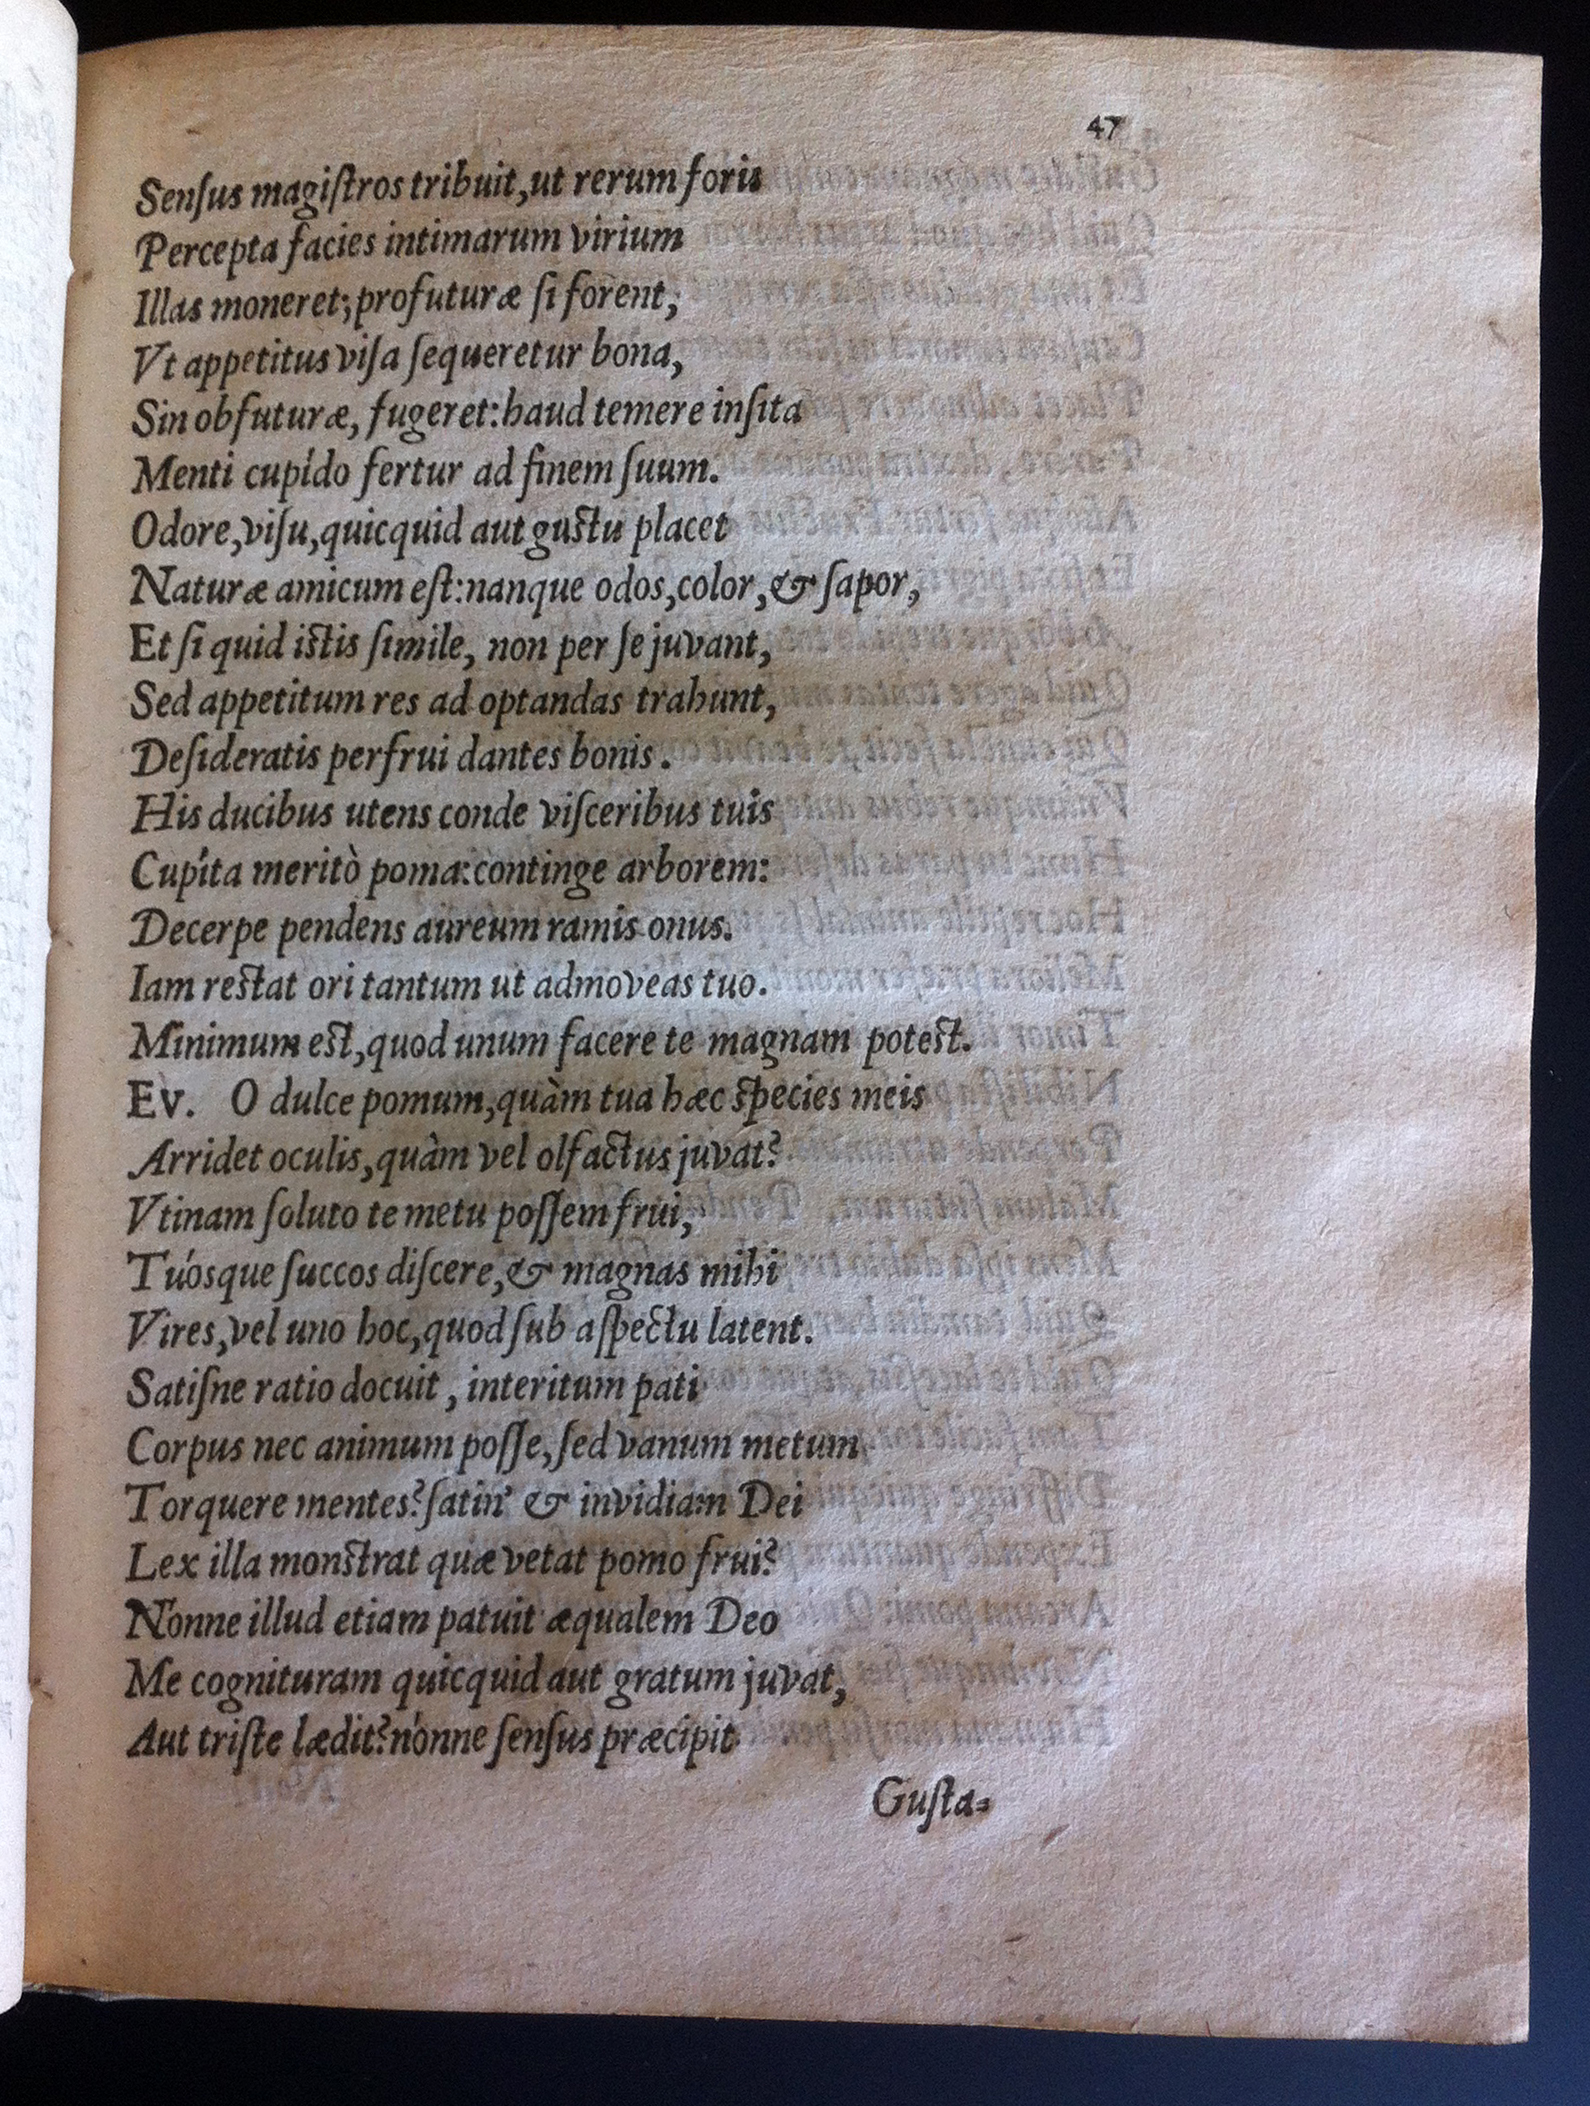 47
Senſus magiſtros tribuit, ut rerum foris
Percepta facies intimarum virium
Illas moneret; profuturæ ſi forent,
Vt appetitus viſa ſequeretur bona,
Sin obfuturæ, fugeret: haud temere inſita
Menti cupído fertur ad finem ſuum.
Odore, viſu, quicquid aut guſtu placet
Naturæ amicum eſt: nanque odos, color, & ſapor,
Et ſi quid iſtis ſimile, non per ſe juvant,
Sed appetitum res ad optandas trahunt,
Deſideratis perfrui dantes bonis.
His ducibus utens conde viſceribus tuis
Cupíta meritò poma: continge arborem:
Decerpe pendens aureum ramis onus.
Iam reſtat ori tantum ut admoveas tuo.
Minimum eſt, quod unum facere te magnam poteſt.
Ev. O dulce pomum, quàm tua hæc ſpecies meis
Arridet oculis, quàm vel olfactus juvat?
Vtinam ſoluto te metu poſſem frui,
Tuósque ſuccos diſcere, & magnas mihi
Vires, vel uno hoc, quod ſub aſpectu latent.
Satiſne ratio docuit, interitum pati
Corpus nec animum poſſe, ſed vanum metum
Torquere mentes? ſatin' & invidiam Dei
Lex illa monſtrat quæ vetat pomo frui?
Nónne illud etiam patuit æqualem Deo
Me cognituram quicquid aut gratum juvat,
Aut triſte lædit? nónne ſenſus præcipit
Guſta-